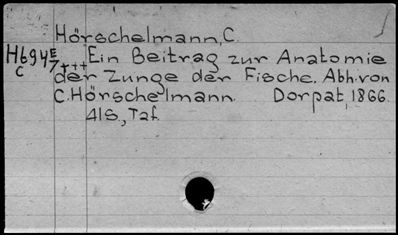 Hörschelmann, C.
H694 E/7 +++ Ein Beitrag zur Anatomie
C der Zunge der Fische. Abh. von
C. Hörschelmann. Dorpat, 1866.
41S., Taf.